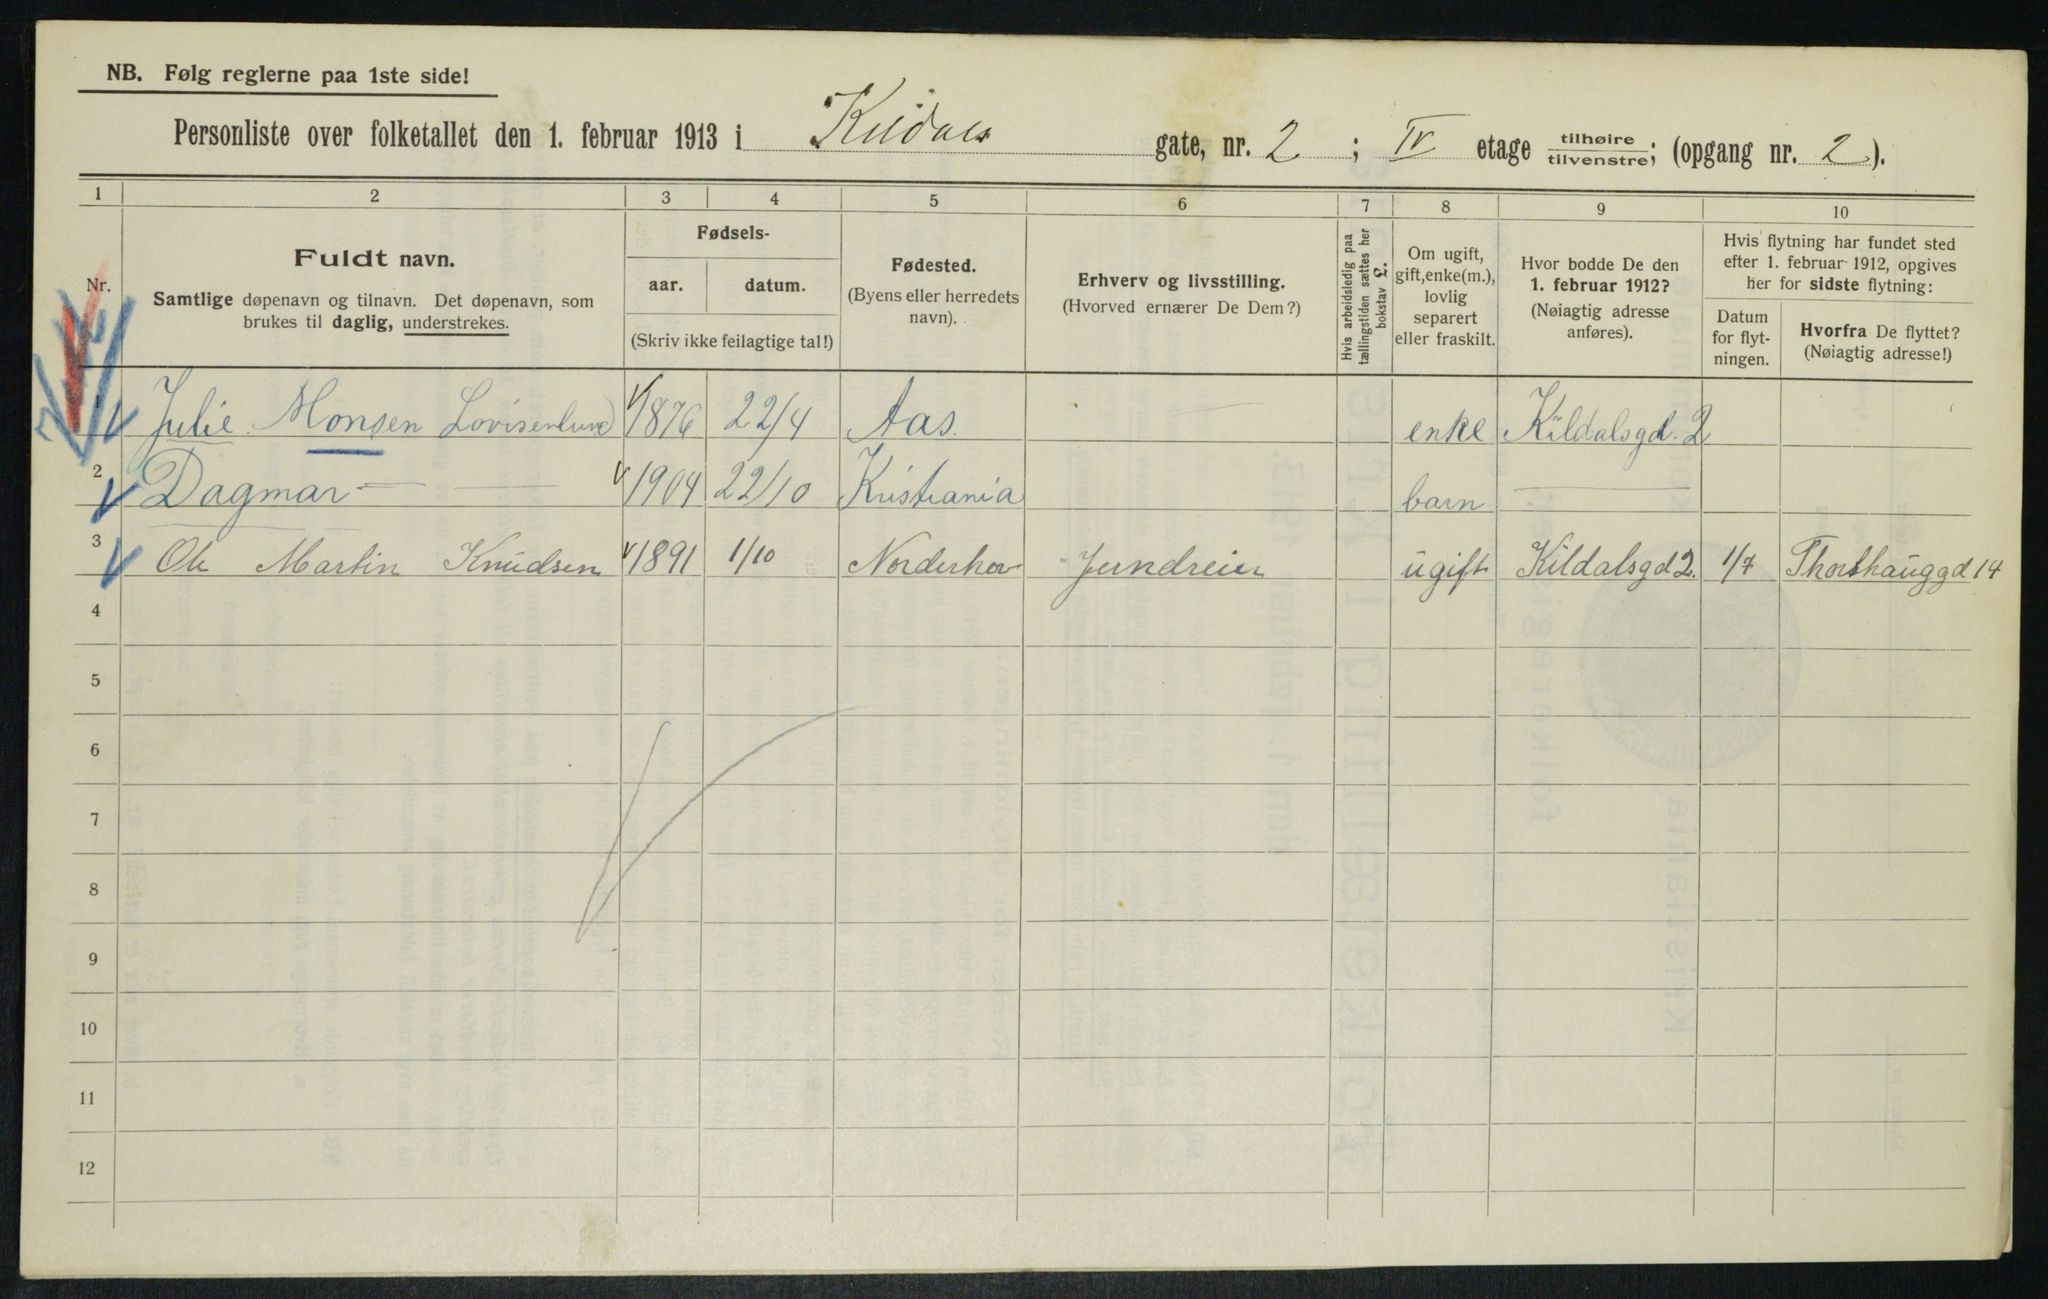 NB. Følg reglerne paa 1ste side!
Personliste over folketallet den 1. februar 1913 i Kildals gate, nr. 2 ; IV etage tilhøire/tilvenstre; (opgang nr. 2 ).
1 2 3 4 5 6 7 8 9 10
Nr.
Fuldt navn.
Samtlige døpenavn og tilnavn. Det døpenavn, som
brukes til daglig, understrekes.
Fødsels-
aar. datum.
(Skriv ikke feilagtige tal!)
Fødested.
(Byens eller herredets
navn).
Erhverv og livsstilling.
(Hvorved ernærer De Dem?)
Hvis arbeidsledig paa
tællingstiden sættes her
bokstav L.
Om ugift,
gift, enke(m.),
lovlig
separert
eller fraskilt.
Hvor bodde De den
1. februar 1912?
(Nøiagtig adresse
anføres).
Hvis flytning har fundet sted
efter 1. februar 1912, opgives
her for sidste flytning:
Datum
for flyt-
ningen.
Hvorfra De flyttet?
(Nøiagtig adresse!)
1 Julie Monsen Lovisenlund 1876 22/4 Aas. — enke Kildalsgd. 2
2 Dagmar — — 1904 22/10 Kristiania barn —
3 Ole Martin Knudsen 1891 1/10 Norderhov Jerndreier ugift Kildalsgd 2. 1/7 Thorshauggd 14
4
5
6
7
8
9
10
11
12